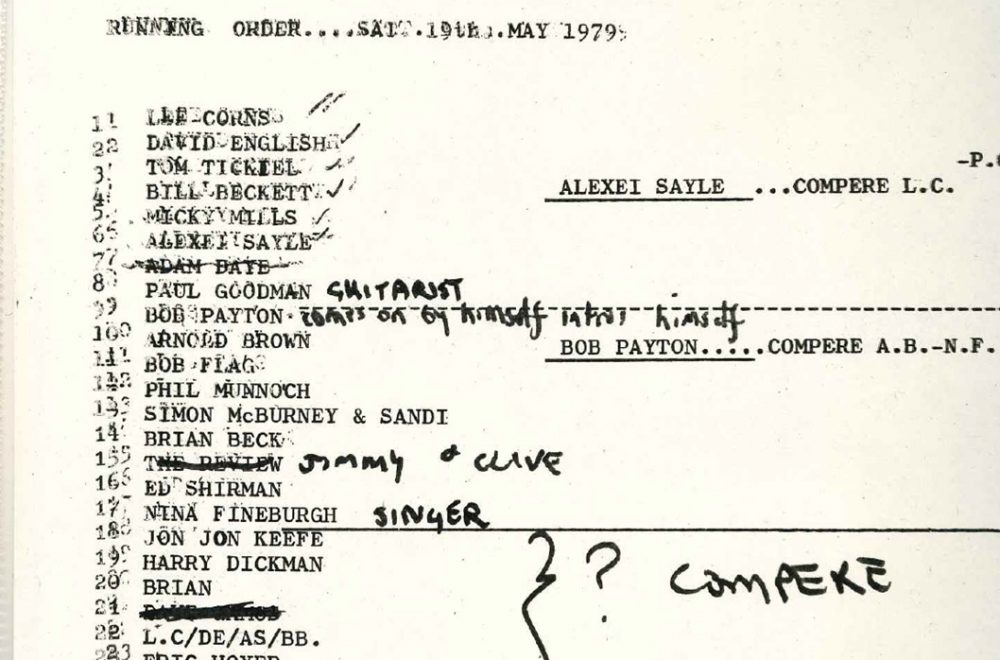 RUNNING ORDER....SAT.19th.MAY 1979.
1 LEE CORNS
2 DAVID ENGLISH
-P.
3 TOM TICKIEL
4 BILL BECKETT
ALEXEI SAYLE ...COMPERE L.C.
5 MICKY MILLS
6 ALEXEI SAYLE
7 ADAM DATE
8 PAUL GOODMAN GUITARIST
9 BOB PAYTON comes on by himself intros himself
10 ARNOLD BROWN
BOB PAYTON.....COMPERE A.B.-N.F.
11 BOB FLAG
12 PHIL MUNNOCH
13 SIMON McBURNEY & SANDI
14 BRIAN BECK
15 THE REVIEW JIMMY & CLIVE
16 ED SHIRMAN
17 NINA FINEBURGH SINGER
18 JON JON KEEFE
19 HARRY DICKMAN
? COMPERE
20 BRIAN
21
22 L.C/DE/AS/BB.
23